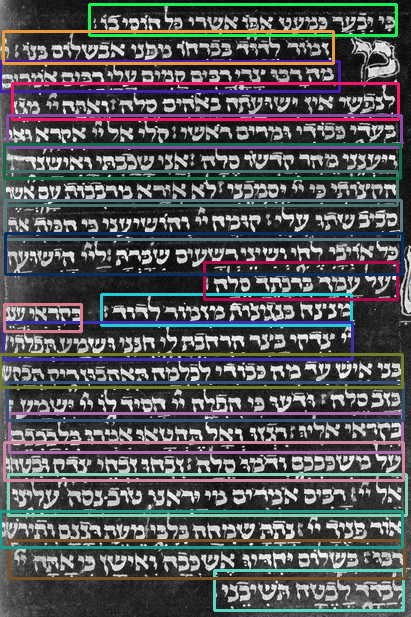 כי יבער כמעט אפו אשרי כל חוסי בו׃
מזמור לדוד בברחו מפני אבשלום בנו׃ יי
מה רבו צרי רבים קמים עלי רבים אמרים
לנפשי אין ישועתה באלהים סלה׃ ואתה יי מגן
בעדי כבודי ומרים ראשי׃ קולי אל יי אקרא
ויענני מהר קדשו סלה׃ אני שכבתי ואישנה
הקיצותי כי יי יסמכני׃ לא אירא מרבבות עם אשר
סביב שתו עלי׃ קומה יי הושיעני כי הכית את
כל אויבי לחי שיני רשעים שברת׃ ליי הישועה
על עמך ברכתך סלה׃
למנצח בנגינות מזמור לדוד׃ בקראי ענ
יי צדקי בצר הרחבת לי חנני ושמע תפלתי
בני איש עד מה כבודי לכלמה תאהבון ריק תבקשו
כזב סלה׃ ודעו כי הפלה יי חסיד לו יי ישמע
בקראי אליו׃ רגזו ואל תחטאו אמרו בלבבכם
על משכבכם ודמו סלה׃ זבחו זבחי צדק ובטחו
אל יי׃ רבים אמרים מי יראנו טוב נסה עלינו
אור פניך יי׃ נתת שמחה בלבי מעת דגנם ותירוש
רבו׃ בשלום יחדיו אשכבה ואישן כי אתה יי
לבדד לבטח תושיבני׃